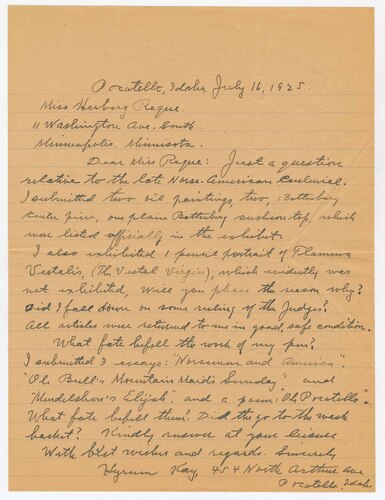 Pocatello, Idaho July 16, 1925.
Miss Herborg Reque.
11 Washington Ave. South.
Minneapolis. Minnesota.
Dear Miss Reque: Just a question
relative to the late Norse-American Centennial.
I submitted two oil paintings, two, 1 Battenburg
center piece, one plain Battenburg cushion top, which
were listed officially in the exhibit.
I also exhibited 1 pencil portrait of Flamma
Vestalis, (The Vestal Virgin), which evidently was
not exhibited, Will you please the reason why?
Did I fall down on some ruling of the Judges?
All articles were returned to me in good, safe condition.
What fate befell the work of my pen?
I submitted 3 essays: "Norsemen and America".
"Ole Bull's Mountain Maid's Sunday", and
"Mendelshon's Elijah", and a poem: "Oh, Pocatello".
What fate befell them? Did the go to the waste
basket? Kindly answer at your leisure
With best wishes and regards. Sincerely
Hyrum Kay, 454 North Arthur Ave
Pocatello, Idaho